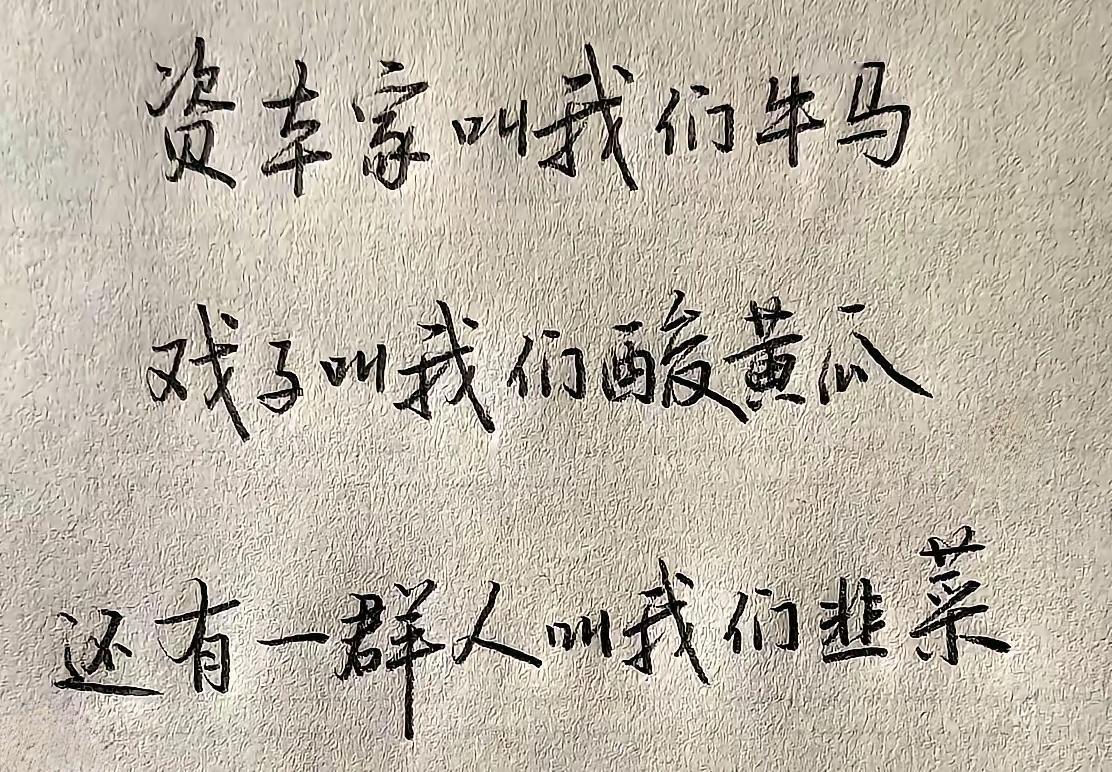 资本家叫我们牛马
戏子叫我们酸黄瓜
还有一群人叫我们韭菜